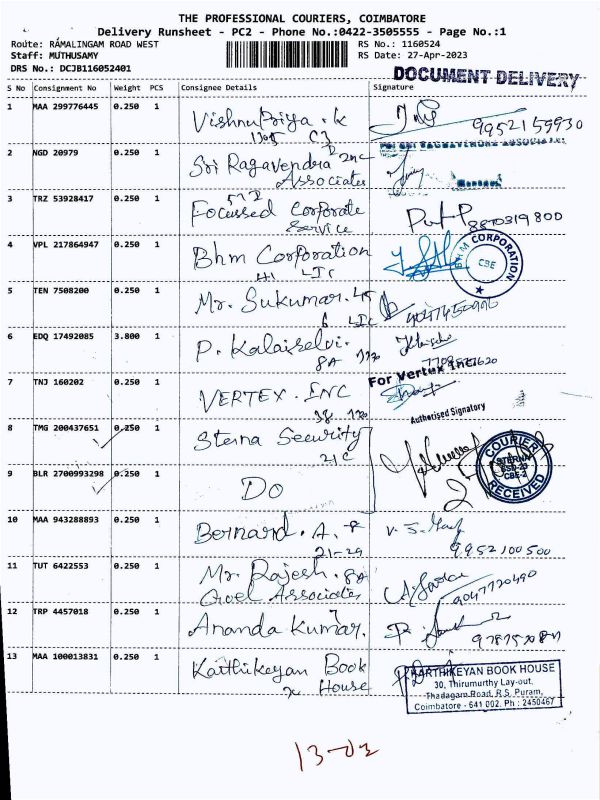 THE PROFESSIONAL COURIERS, COIMBATORE
Delivery Runsheet - PC2 - Phone No.:0422-3505555 - Page No.:1
Route: RAMALINGAM ROAD WEST
RS No.: 1160524
Staff: MUTHUSAMY
RS Date: 27-Apr-2023
DRS No.: DCJB116052401
DOCUMENT DELIVERY
S No Consignment No Weight PCS Consignee Details Signature
1 MAA 299776445 0.250 1 Vishnu Priya . K
1305 C3 9952159930
2 NGD 20979 0.250 1 Sri Ragavendra Inc
Associates
3 TRZ 53928417 0.250 1 Focussed Corporate
Service 8870319800
4 VPL 217864947 0.250 1 Bhm Corporation
LIC
BHM CORPORATION
CBE
5 TEN 7508200 0.250 1 Mr. Sukumar.
LIC
6 EDQ 17492085 3.800 1 P. Kalaiselvi.
8A
For Vertex Inc.
7 TNJ 160202 0.250 1 VERTEX . INC
Authorised Signatory
8 TMG 200437651 0.250 1 Sterna Security
21C
COURIER
STERNA
CBE-2
RECEIVED
9 BLR 2700993298 0.250 1 DO
10 MAA 943288893 0.250 1 Bernard . A.
21-29 9952100500
11 TUT 6422553 0.250 1 Mr. Rajesh. 8A
Goel Associates 9047720490
12 TRP 4457018 0.250 1 Ananda Kumar.
13 MAA 100013831 0.250 1 Karthikeyan Book
House
KARTHIKEYAN BOOK HOUSE
30, Thirumurthy Lay-out,
Thadagam Road, R.S. Puram,
Coimbatore - 641 002. Ph : 2450467
13-02